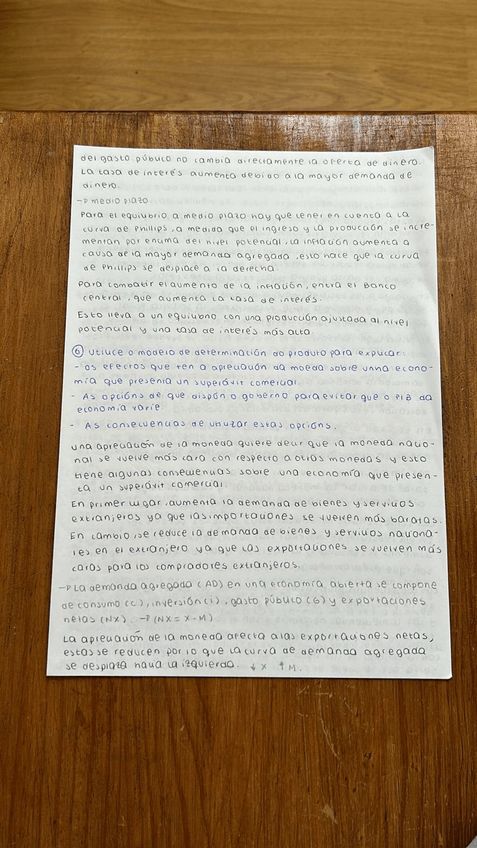 del gasto público no cambia directamente la oferta de dinero.
La tasa de interés aumenta debido a la mayor demanda de
dinero.
→ medio plazo.
Para el equilibrio a medio plazo hay que tener en cuenta a la
curva de Phillips, a medida que el ingreso y la producción se incre-
mentan por encima del nivel potencial, la inflación aumenta a
causa de la mayor demanda agregada, esto hace que la curva
de Phillips se desplace a la derecha.
Para combatir el aumento de la inflación, entra el Banco
central, que aumenta la tasa de interés.
Esto lleva a un equilibrio con una producción ajustada al nivel
potencial y una tasa de interés más alta.
⑥ Utilice o modelo de determinación do produto para explicar:
- os efectos que ten a apreciación da moeda sobre unha econo-
mía que presenta un superávit comercial.
- As opcións de que dispón o goberno para evitar que o PIB da
economía varíe.
- As consecuencias de utilizar estas opcións.
Una apreciación de la moneda quiere decir que la moneda nacio-
nal se vuelve más cara con respecto a otras monedas y esto
tiene algunas consecuencias sobre una economía que presen-
ta un superávit comercial.
En primer lugar, aumenta la demanda de bienes y servicios
extranjeros ya que las importaciones se vuelven más baratas.
En cambio, se reduce la demanda de bienes y servicios naciona-
les en el extranjero ya que las exportaciones se vuelven más
caras para los compradores extranjeros.
→ La demanda agregada (AD) en una economía abierta se compone
de consumo (C), inversión (I), gasto público (G) y exportaciones
netas (NX). → (NX = X - M)
La apreciación de la moneda afecta a las exportaciones netas,
estas se reducen por lo que la curva de demanda agregada
se desplaza hacia la izquierda. ↓ X ↑ M.